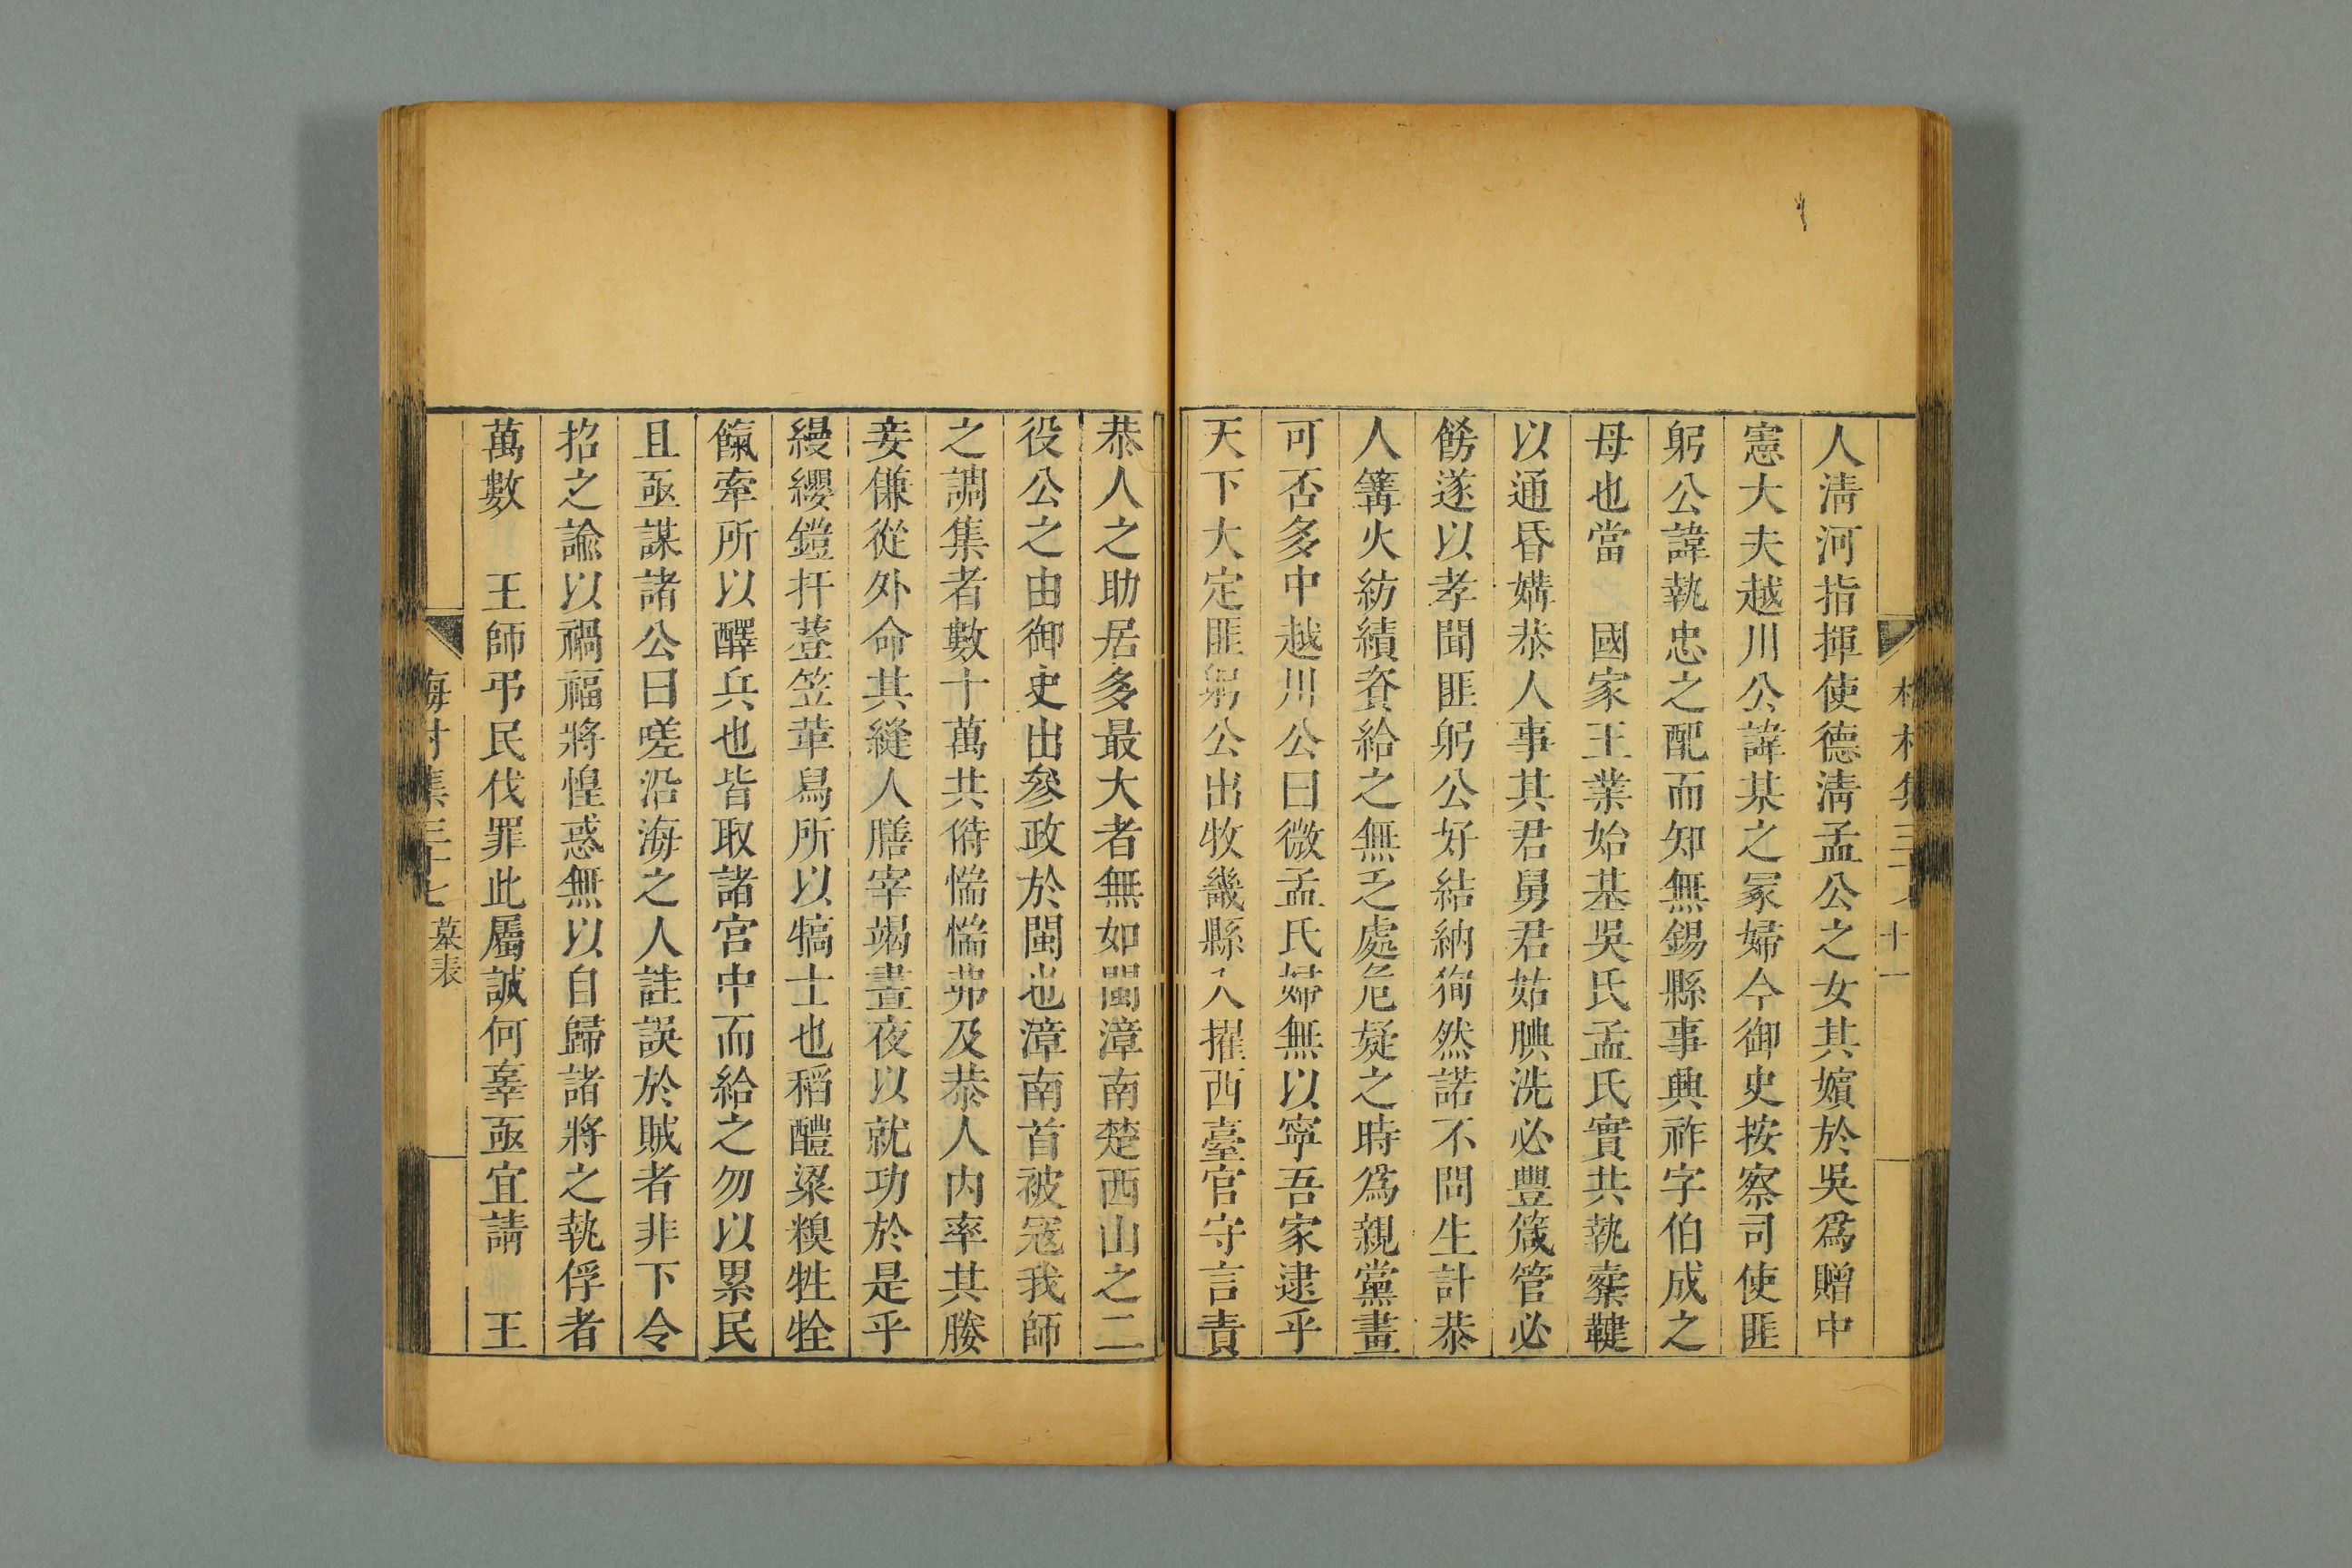 人淸河指揮使德淸孟公之女其嬪於吳爲贈中
憲大夫越川公諱某之冢婦今御史按察司使匪
躬公諱執忠之配而知無錫縣事興祚字伯成之
母也當　國家王業始基吳氏孟氏實共執櫜鞬
以通昏媾恭人事其君舅君姑腆洗必豐箴管必
餝遂以孝聞匪躬公好結納徇然諾不問生計恭
人篝火紡績資給之無乏處危疑之時爲親黨畫
可否多中越川公曰微孟氏婦無以寧吾家逮乎
天下大定匪躬公出牧畿縣入擢西臺官守言責
恭人之助居多最大者無如閩漳南楚西山之二
役公之由御史出參政於閩也漳南首被寇我師
之調集者數十萬共偫惴惴弗及恭人內率其媵
妾傔從外命其縫人膳宰竭晝夜以就功於是乎
縵纓鎧扞簦笠革舃所以犒士也稻醴粱糗牲牷
餼牽所以醳兵也皆取諸宮中而給之勿以累民
且亟謀諸公曰嗟沿海之人詿誤於賊者非下令
招之諭以禍福將惶惑無以自歸諸將之執俘者
萬數　王師弔民伐罪此屬誠何辜亟宜請　王
梅村集三十七　墓表
十一